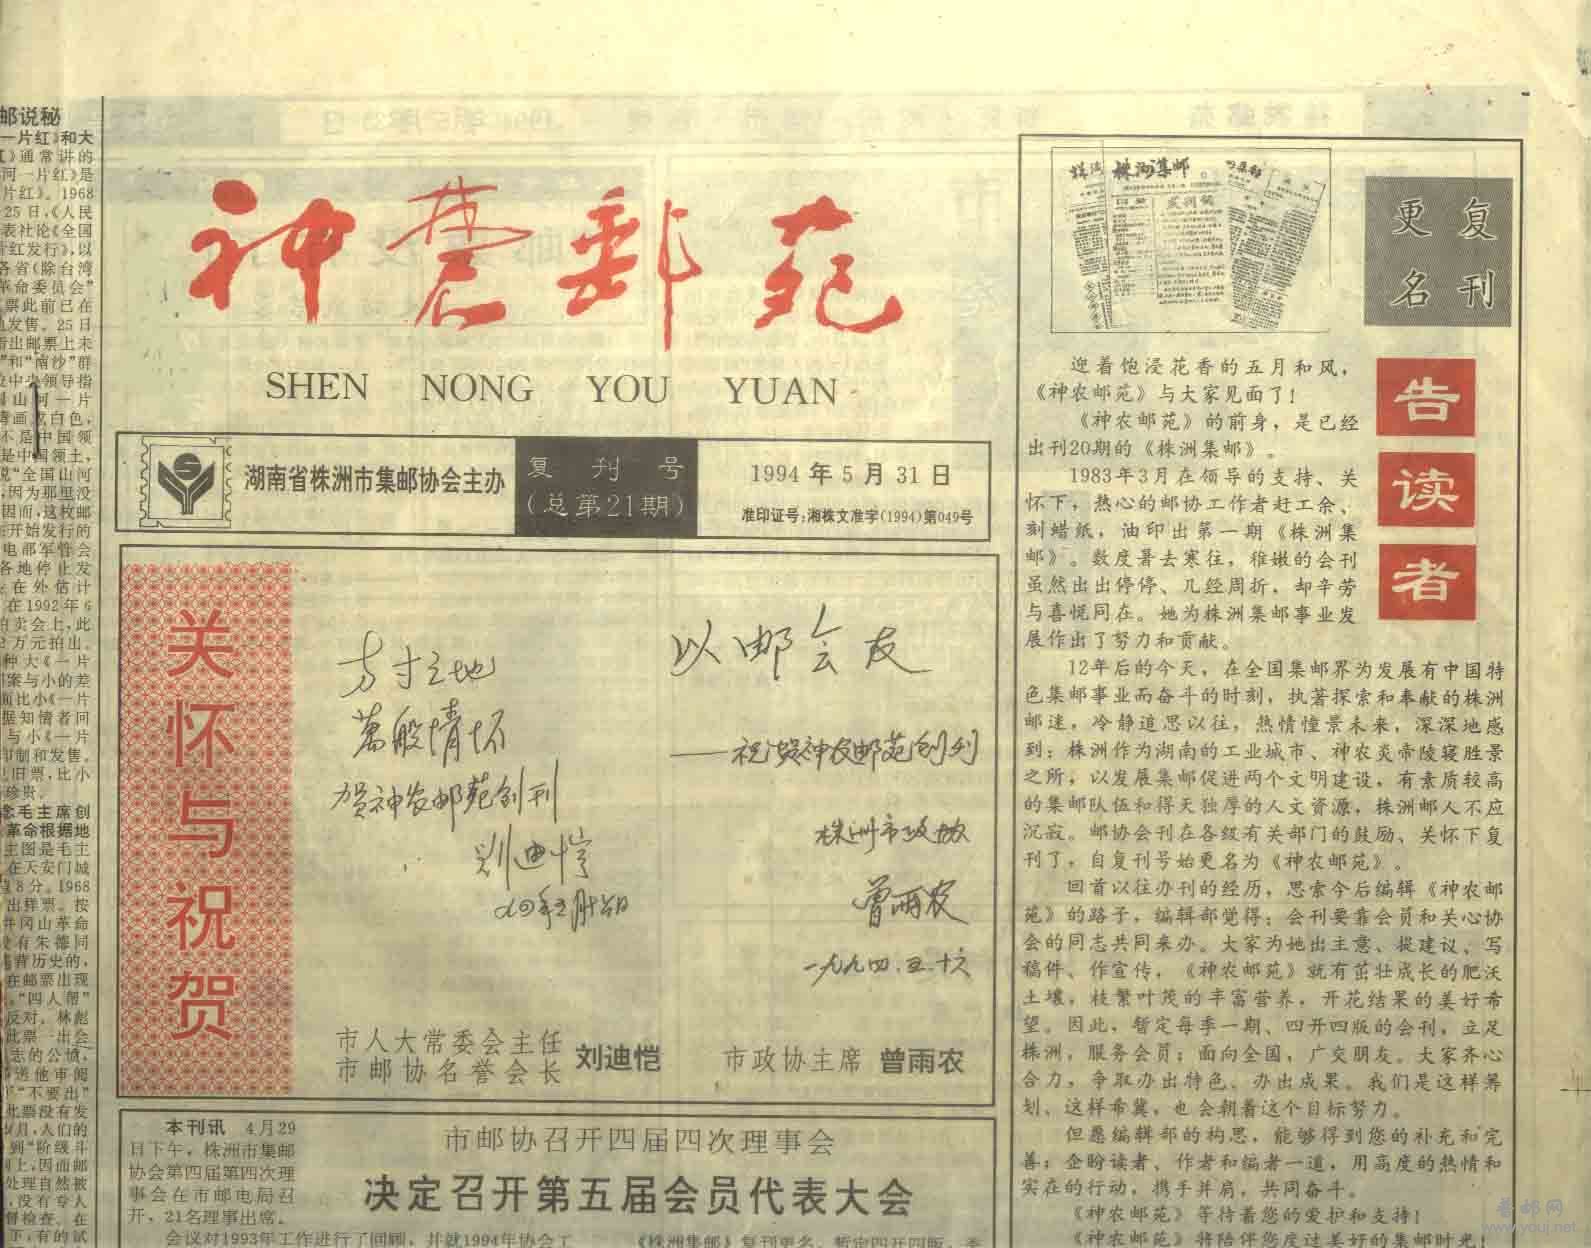 神农邮苑
SHEN NONG YOU YUAN
湖南省株洲市集邮协会主办
复刊号
(总第21期)
1994年5月31日
准印证号:湘株文准字(1994)第049号
关怀与祝贺
方寸之地
萬般情怀
贺神农邮苑创刊
刘迪恺
以邮会友
——祝贺神农邮苑创刊
株洲市政协
曾雨农
一九九四.五.十六
市人大常委会主任
市邮协名誉会长 刘迪恺
市政协主席 曾雨农
本刊讯 4月29
日下午，株洲市集邮
协会第四届第四次理
事会在市邮电局召
开，21名理事出席。
会议对1993年工作进行了回顾，并就1994年协会工
市邮协召开四届四次理事会
决定召开第五届会员代表大会
《株洲集邮》复刊更名，暂定四开四版，季
株洲集邮
复刊
更名
告读者
迎着饱浸花香的五月和风，
《神农邮苑》与大家见面了！
《神农邮苑》的前身，是已经
出刊20期的《株洲集邮》。
1983年3月在领导的支持、关
怀下，热心的邮协工作者赶工余、
刻蜡纸，油印出第一期《株洲集
邮》。数度暑去寒往，稚嫩的会刊
虽然出出停停、几经周折，却辛劳
与喜悦同在。她为株洲集邮事业发
展作出了努力和贡献。
12年后的今天，在全国集邮界为发展有中国特
色集邮事业而奋斗的时刻，执著探索和奉献的株洲
邮迷，冷静追思以往，热情憧景未来，深深地感
到：株洲作为湖南的工业城市、神农炎帝陵寝胜景
之所，以发展集邮促进两个文明建设，有素质较高
的集邮队伍和得天独厚的人文资源，株洲邮人不应
沉寂。邮协会刊在各级有关部门的鼓励、关怀下复
刊了，自复刊号始更名为《神农邮苑》。
回首以往办刊的经历，思索今后编辑《神农邮
苑》的路子，编辑部觉得：会刊要靠会员和关心协
会的同志共同来办。大家为她出主意、提建议、写
稿件、作宣传，《神农邮苑》就有茁壮成长的肥沃
土壤，枝繁叶茂的丰富营养，开花结果的美好希
望。因此，暂定每季一期、四开四版的会刊，立足
株洲，服务会员；面向全国，广交朋友。大家齐心
合力，争取办出特色、办出成果。我们是这样筹
划、这样希冀，也会朝着这个目标努力。
但愿编辑部的构思，能够得到您的补充和完
善；企盼读者、作者和编者一道，用高度的热情和
实在的行动，携手并肩，共同奋斗。
《神农邮苑》等待着您的爱护和支持！
《神农邮苑》将陪伴您度过美好的集邮时光！
邮说秘
一片红》和大
》通常讲的
河一片红》是
片红》。1968
25日，《人民
表社论《全国
片红发行》，以
各省(除台湾
革命委员会”
票此前已在
发售。25日
出邮票上未
”和“南沙”群
中央领导指
山河一片
画成白色，
不是中国领
是中国领土，
说“全国山河
因为那里没
因而，这枚邮
开始发行的
电部军管会
各地停止发
在外估计
在1992年6
拍卖会上，此
2万元拍出。
种大《一片
图案与小的差
面比小《一片
据知情者同
与小《一片
印制和发售。
旧票，比小
珍贵。
念毛主席创
革命根据地
主图是毛主
在天安门城
8分。1968
出样票。按
井冈山革命
没有朱德同
违背历史的，
在邮票出现
。“四人帮”
反对，林彪
此票一出会
志的公愤，
送他审阅
“不要出”
此票没有发
岁月，人们的
到“阶级斗
上，因而邮
处理自然被
，没有专人
督检查。在
下，有的试
普邮网
www.youj.net